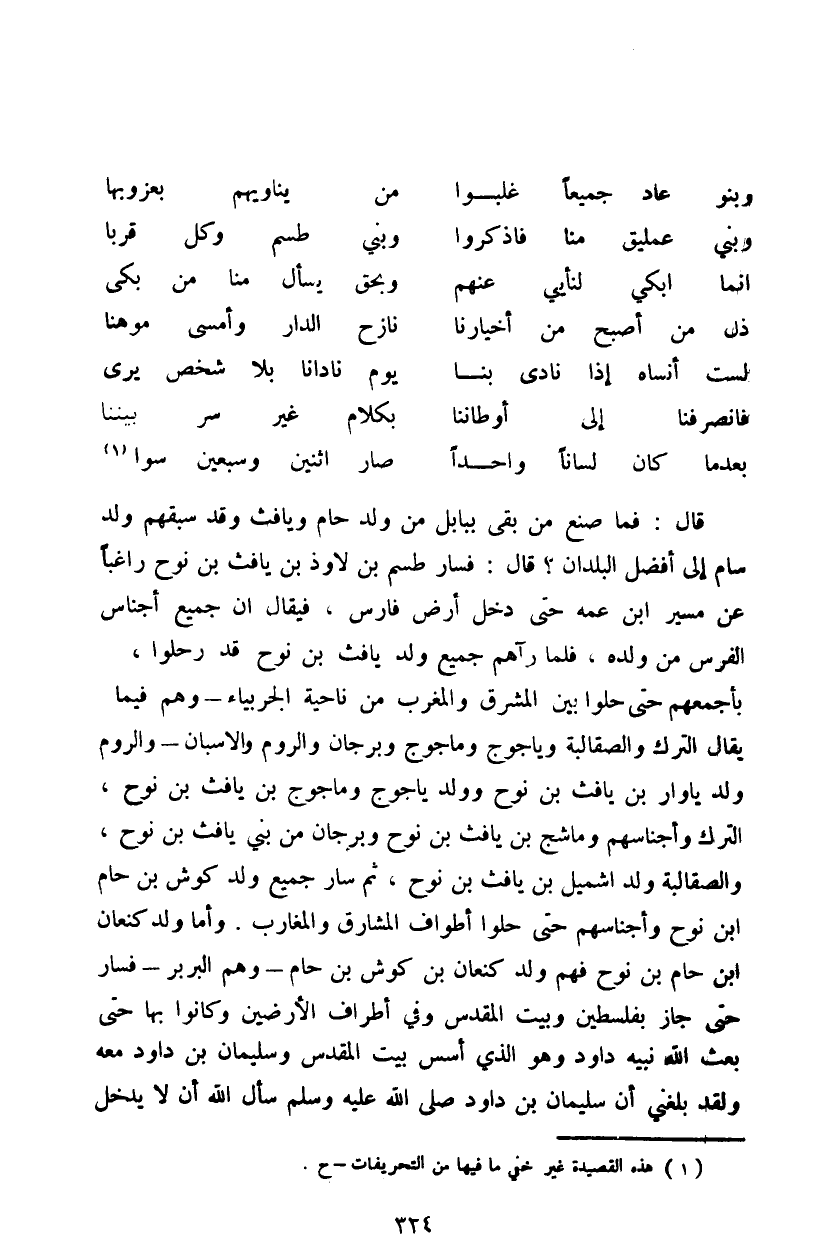 وبنو عاد جميعاً غلبـــوا من يناويهم بعزوبها
وبني عمليق منا فاذكروا وبني طسم وكل قربا
انما ابكي لنأيي عنهم وبحق يسأل منا من بكى
ذل من أصبح من أخيارنا نازح الدار وأمسى موهنا
لست أنساه إذا نادى بنـــا يوم نادانا بلا شخص يرى
فانصرفنا إلى أوطاننا بكلام غير سر بيننا
بعدما كان لساناً واحـــداً صار اثنين وسبعين سوا (١)
قال : فما صنع من بقى ببابل من ولد حام ويافث وقد سبقهم ولد
سام إلى أفضل البلدان ؟ قال : فسار طسم بن لاوذ بن يافث بن نوح راغباً
عن مسير ابن عمه حتى دخل أرض فارس ، فيقال ان جميع أجناس
الفرس من ولده ، فلما رآهم جميع ولد يافث بن نوح قد رحلوا ،
بأجمعهم حتى حلوا بين المشرق والمغرب من ناحية الجربياء – وهم فيما
يقال الترك والصقالبة وياجوج وماجوج وبرجان والروم والاسبان – والروم
ولد ياوار بن يافث بن نوح وولد ياجوج وماجوج بن يافث بن نوح ،
الترك وأجناسهم وماشج بن يافث بن نوح وبرجان من بني يافث بن نوح ،
والصقالبة ولد اشميل بن يافث بن نوح ، ثم سار جميع ولد كوش بن حام
ابن نوح وأجناسهم حتى حلوا أطواف المشارق والمغارب . وأما ولد كنعان
ابن حام بن نوح فهم ولد كنعان بن كوش بن حام – وهم البربر – فسار
حتى جاز بفلسطين وبيت المقدس وفي أطراف الأرضين وكانوا بها حتى
بعث الله نبيه داود وهو الذي أسس بيت المقدس وسليمان بن داود معه
ولقد بلغني أن سليمان بن داود صلى الله عليه وسلم سأل الله أن لا يدخل
( ١ ) هذه القصيدة غير خفي ما فيها من التحريفات – ح .
٣٢٤